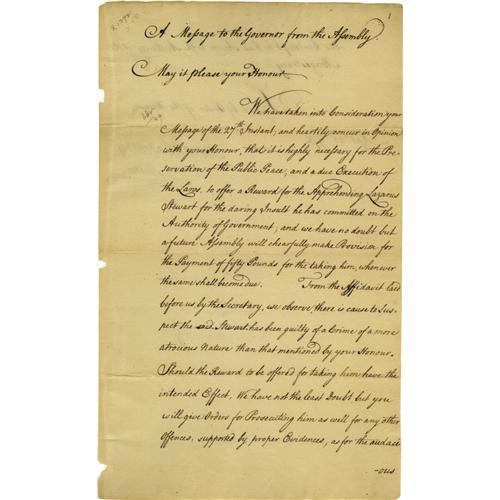 1
A Message to the Governor from the Assembly
May it please your Honour
We have taken into Consideration your
Message of the 27th Instant; and heartily concur in Opinion
with your Honour, that it is highly necessary for the Pre-
servation of the Public Peace, and a due Execution of
the Laws, to offer a Reward for the Apprehending Lazarus
Stewart for the daring Insult he has committed on the
Authority of Government; and we have no doubt but
a future Assembly will chearfully make Provision for
the Payment of fifty Pounds for the taking him, whenever
the same shall become due. From the Affidavit laid
before us, by the Secretary, we observe there is cause to Sus-
pect the said Stewart has been guilty of a Crime of a more
atrocious Nature than that mentioned by your Honour.
Should the Reward to be offered for taking him have the
intended Effect, We have not the least Doubt but you
will give Orders for Prosecuting him as well for any other
Offences, supported by proper Evidences, as for the audaci
-ous